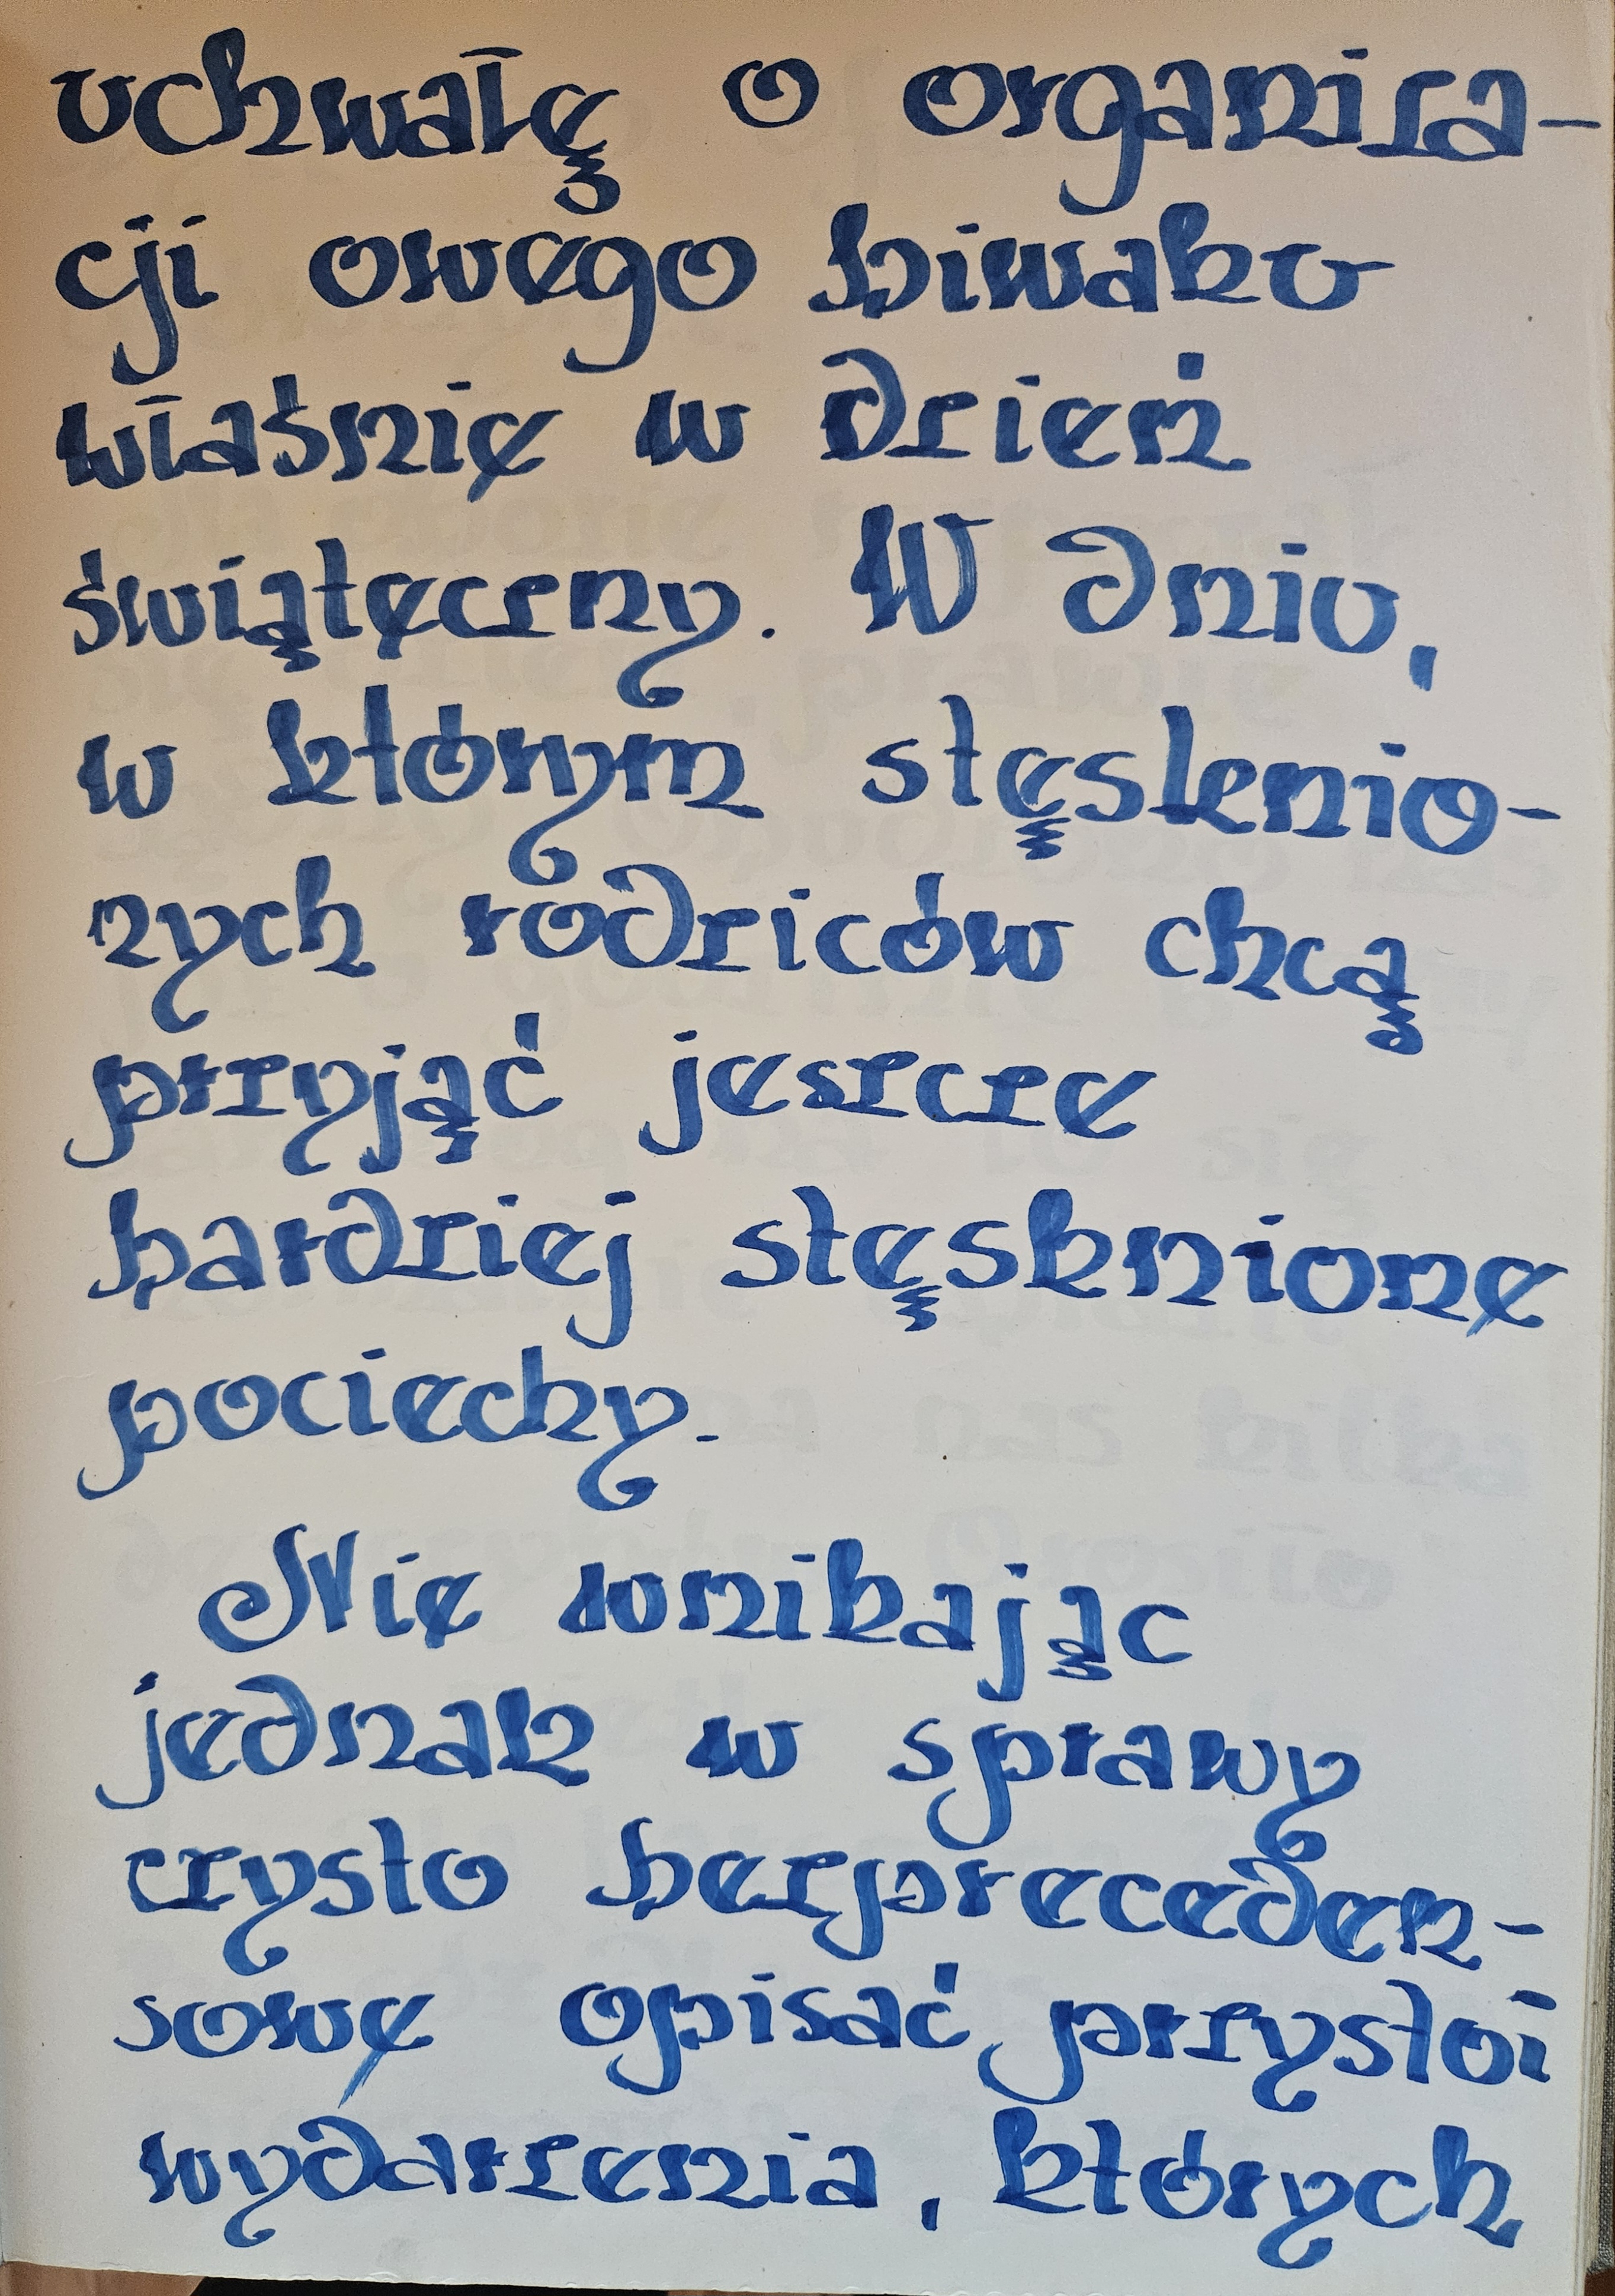 uchwałę o organiza-
cji owego biwaku
właśnie w dzień
świąteczny. W dniu,
w którym stęslenio-
nych rodziców chcą
przyjąć jeszcze
bardziej stęsknione
pociechy.
Nie wnikając
jednak w sprawy
czysto bezpreceden-
sowe opisać przystoi
wydarzenia, których